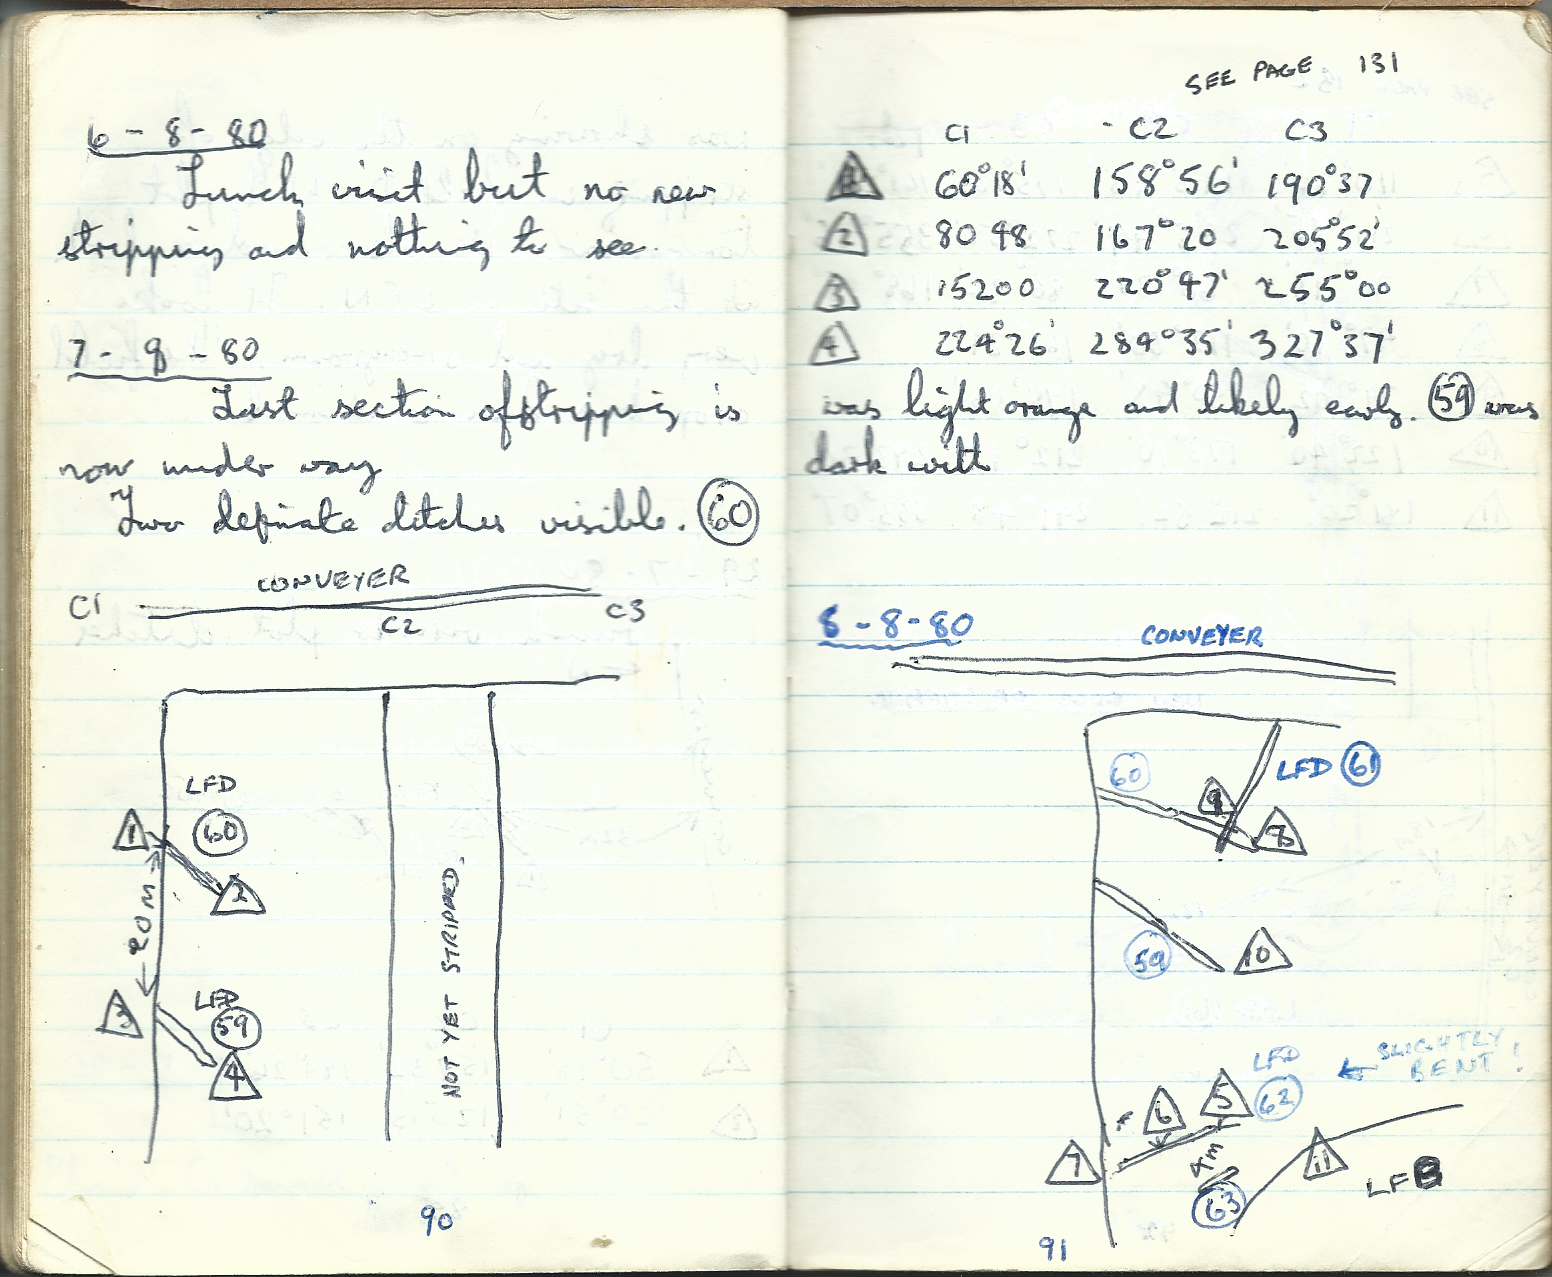 6 - 8 - 80
Lunch visit but no new
stripping and nothing to see.
7 - 8 - 80
Last section of stripping is
now under way
Two definate ditches visible. 60
CONVEYER
C1
C2
C3
LFD
60
1
2
20 M
3
LFD
59
4
NOT YET STRIPPED.
90
SEE PAGE 131
C1 C2 C3
1 60°18' 158°56' 190°37
2 80 48 167°20 205°52'
3 152 00 220°47' 255°00
4 224°26' 284°35' 327°37'
was light orange and likely early. 59 was
dark with
8 - 8 - 80
CONVEYER
60
LFD 61
9
8
59
10
SLIGHTLY
BENT!
LFD
62
5
6
7
4m
63
11
LFB
91